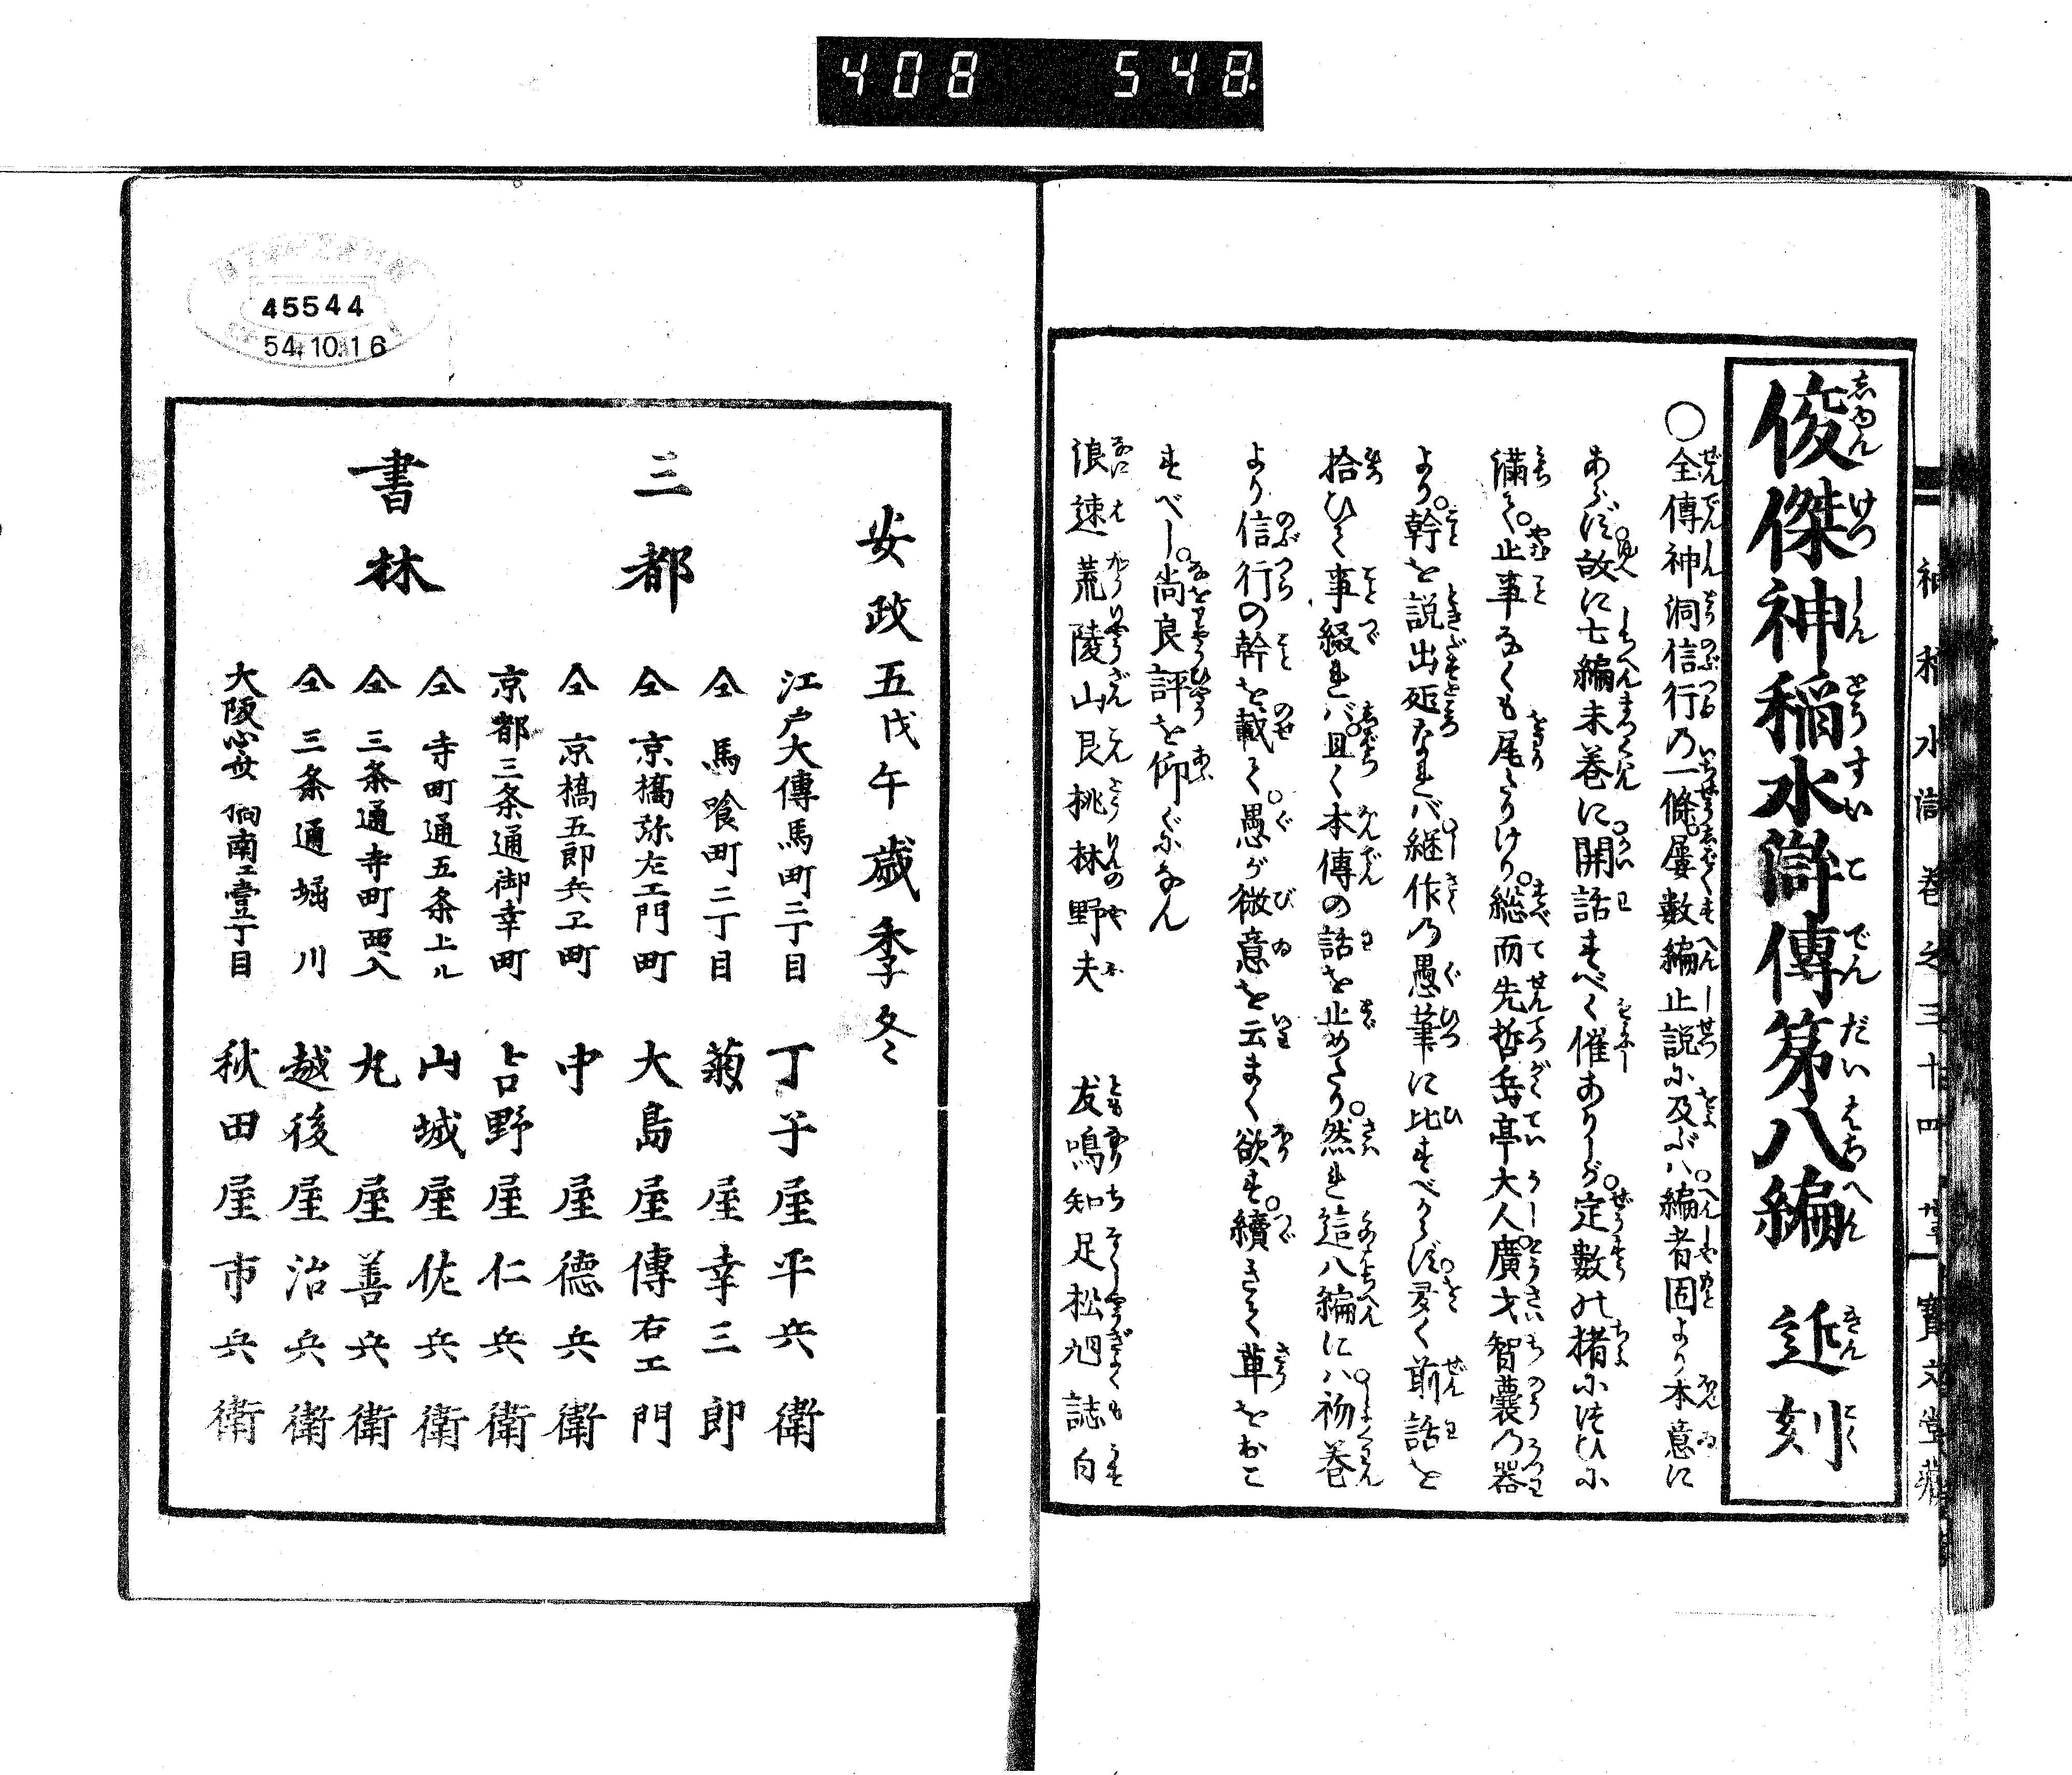 408 548
俊傑神稲水滸傳第八編 近刻
○全傳神洞信行の一條屡數編止説に及ぶハ編者固より本意に
あらず故に七編末巻に開話すべく催ありしが定數の楮に満ひに
満て止事なくも尾となりけり総而先哲岳亭大人廣才智嚢の器
より幹を説出処なれバ継作の愚筆に比すべからず夛く前話を
拾ひて事綴れバ且く本傳の話を止めたり然れ這八編にハ初巻
より信行の幹を載て愚が微意を云まく欲す續きて草をおこ
すべし尚良評を仰ぐになん
浪速荒陵山艮桃林野夫 友鳴知足松旭誌白
神稲水滸巻之三十四 寳文堂蔵
45544
54.10.16
安政五戊午歳季冬
三都
書林
江戸大傳馬町二丁目 丁子屋平兵衛
仝 馬喰町二丁目 菊屋幸三郎
仝 京橋弥左エ門町 大島屋傳右エ門
仝 京橋五郎兵ヱ町 中屋徳兵衛
京都三条通御幸町 吉野屋仁兵衛
仝 寺町通五条上ル 山城屋佐兵衛
仝 三条通寺町西入 丸屋善兵衛
仝 三条通堀川 越後屋治兵衛
大阪心斎橋南エ壹丁目 秋田屋市兵衛